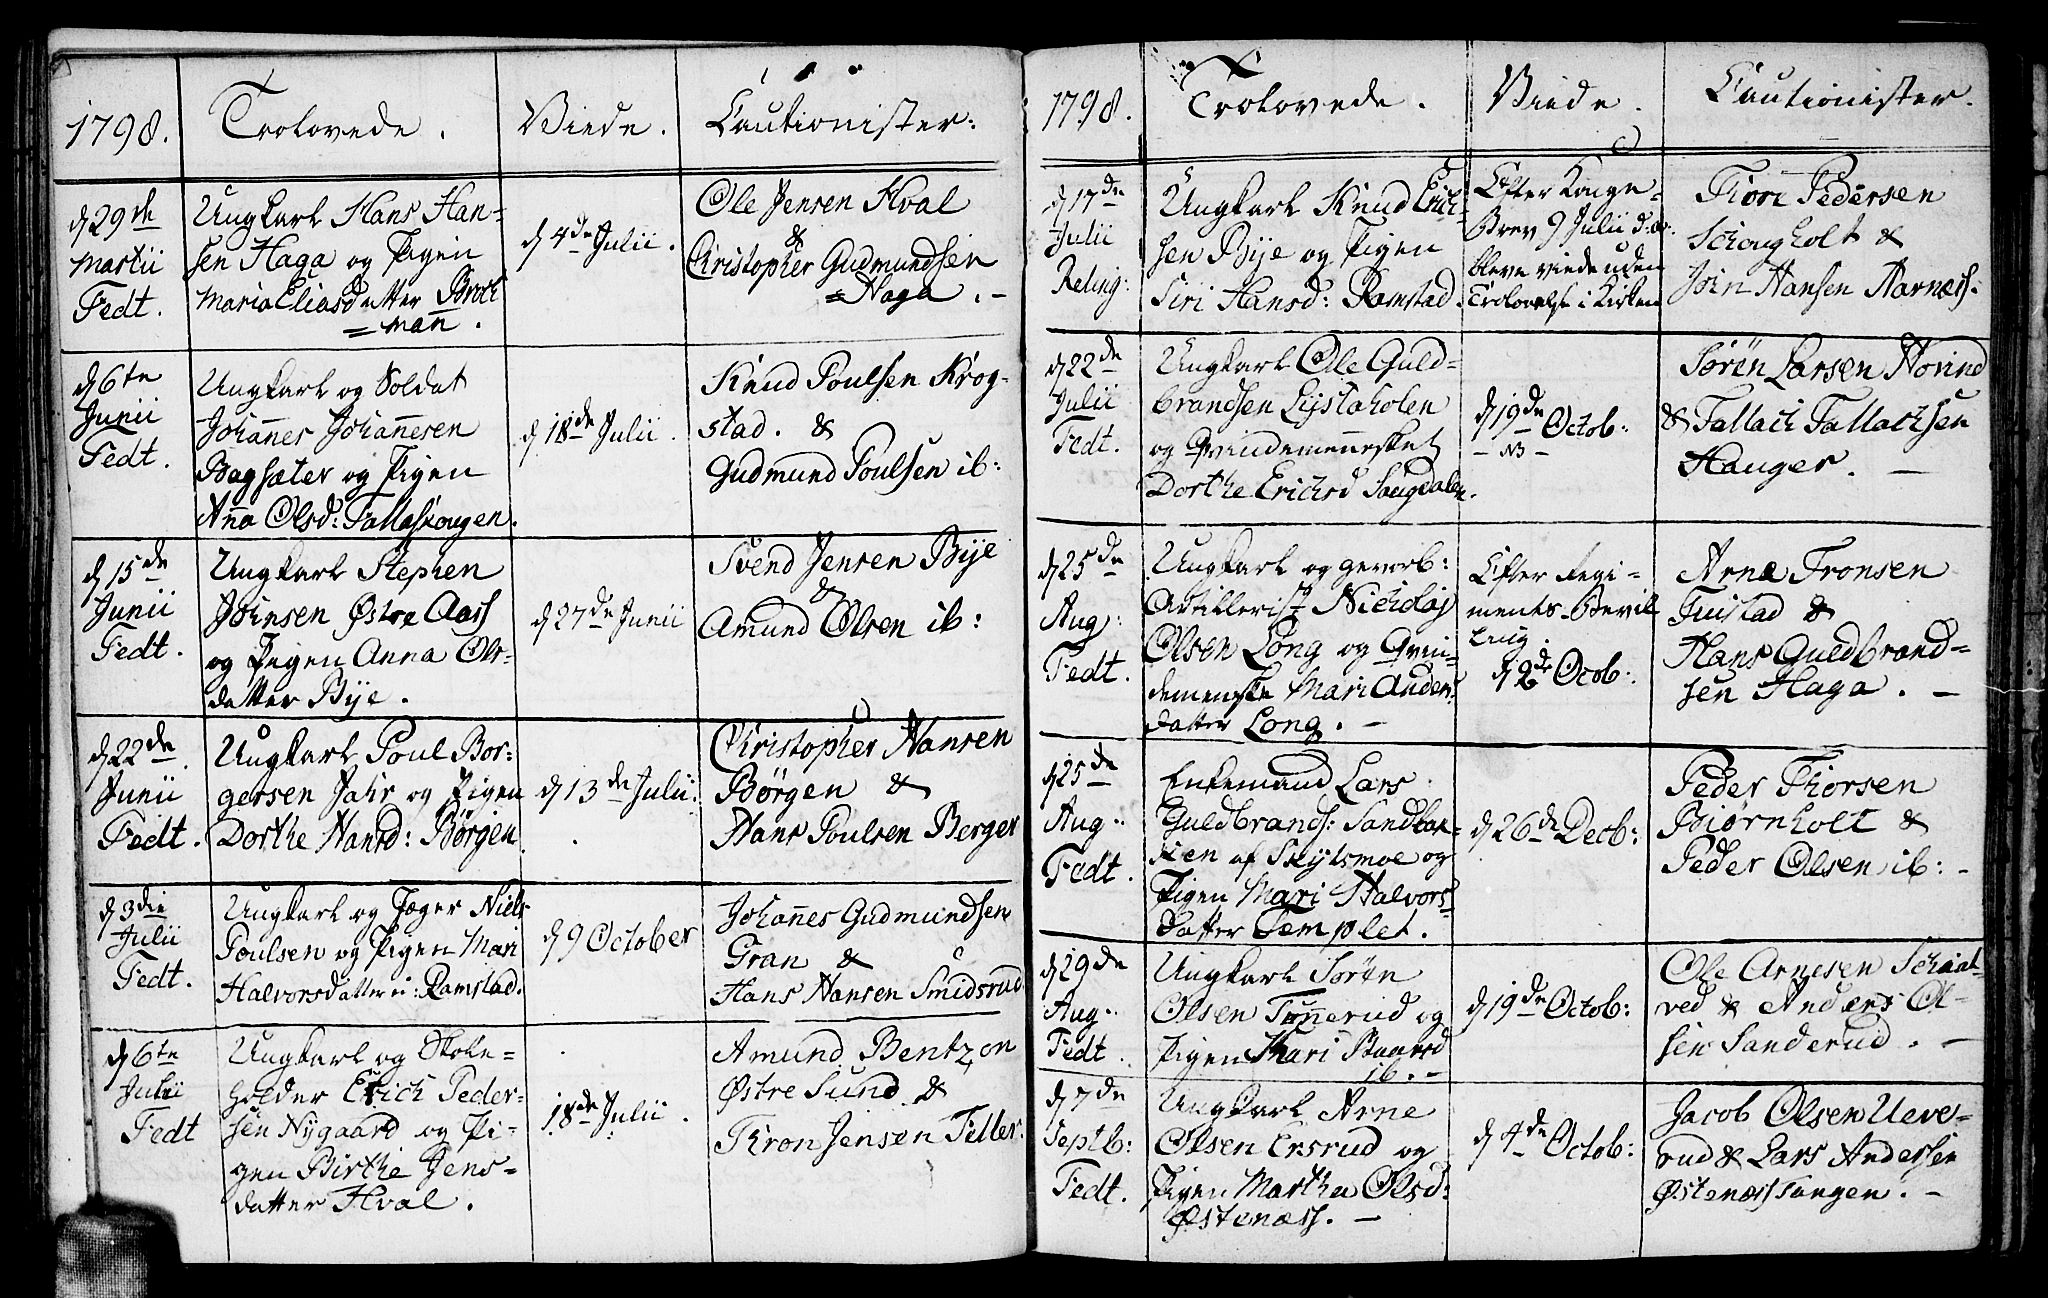 1798.
Trolovede.
Viede.
Cautionister:
d 29de
Martii
Fedt.
Ungkarl Hans Han-
sen Haga og Pigen
Maria Eliasdatter Broch
= man.
d 4de Julii.
Ole Jensen Hval
&
Christopher Gudmundsen
= Haga. -
d 6te
Junii
Fedt.
Ungkarl og Soldat
Johannes Johannesen
Bagsæter og Pigen
Anna Olsd: Fallaskougen.
d 18de Julii.
Knud Poulsen Krog-
stad. &
Gudmund Poulsen ib:
d 15de
Junii
Fedt.
Ungkarl Stephen
Joinsen Østre Aass
og Pigen Anna Ols-
datter Bye.
d 27de Junii
Svend Jensen Bye
&
Amund Olsen ib:
d 22de
Junii
Fedt.
Ungkarl Poul Bor-
gersen Jahr og Pigen
Dorthe Hansd: Børgen
d 13de Julii.
Christopher Hansen
Børgen &
Hans Poulsen Berger
d 3die
Julii
Fedt.
Ungkarl og Jæger Niels
Poulsen og Pigen Mari
Halvorsdatter ei: Ramstad.
d 9 October
Johannes Gudmundsen
Gran &
Hans Hansen Smidsrud
d 6te
Julii
Fedt
Ungkarl og Skole-
holder Erich Peder-
sen Nygaard og Pi-
gen Birthe Jens-
datter Hval.
18de Julii.
Amund Bentzon
Østre Sund &
Thron Jensen Feller.
1798.
Trolovede.
Viede.
Cautionister.
d 17de
Julii
Reling:
Ungkarl Knud Erich-
sen Bye og Pigen
Siri Hansd: Ramstad.
Efter Konge-
Brev 9 Julii d: ar:
bleve viede uden
Trolovelse i Kirken
Thori Pedersen
Schougholt &
Join Hansen Aarnæss.
d 22de
Julii
Fedt.
Ungkarl Ole Guld-
brandsen Lystaholen
og Qvindemennesket
Dorthe Erichsd Saugdalen.
d 19de Octob:
- NB -
Sørën Larsen Hovind
& Tallach Tallachsen
Hauger. -
d 25de
Aug:
Fedt.
Ungkarl og gevorb:
Artillerist Nicholaj
Olsen Long og Qvin-
demenske Mari Anders
datter Long. -
Efter Regi-
ments-Bevil
ling.
d 2de Octob:
Arne Tronsen
Tuistad &
Hans Guldbrand-
sen Haga. -
d 25de
Aug:
Fedt.
Enkemand Lars
Guldbrands: Sandbak-
ken af Skytsmoe og
Pigen Mari Halvors-
datter Templet.
d 26de Decb:
Peder Thorsen
Biørnholt &
Peder Olsen ib: -
d 29de
Aug:
Fedt.
Ungkarl Sørën
Olsen Tønnerud og
Pigen Mari Baarsd
ib. -
d 19de Octob:
Ole Arnesen
ved & Anders Ol-
sen Sanderud. -
d 7de
Septb:
Fedt.
Ungkarl Arne
Olsen Ersrud og
Pigen Martha Olsd:
Østenæss. -
d 4de Octob:
Jacob Olsen Ueve-
rud & Lars Andersen
Østenæss sangen. -